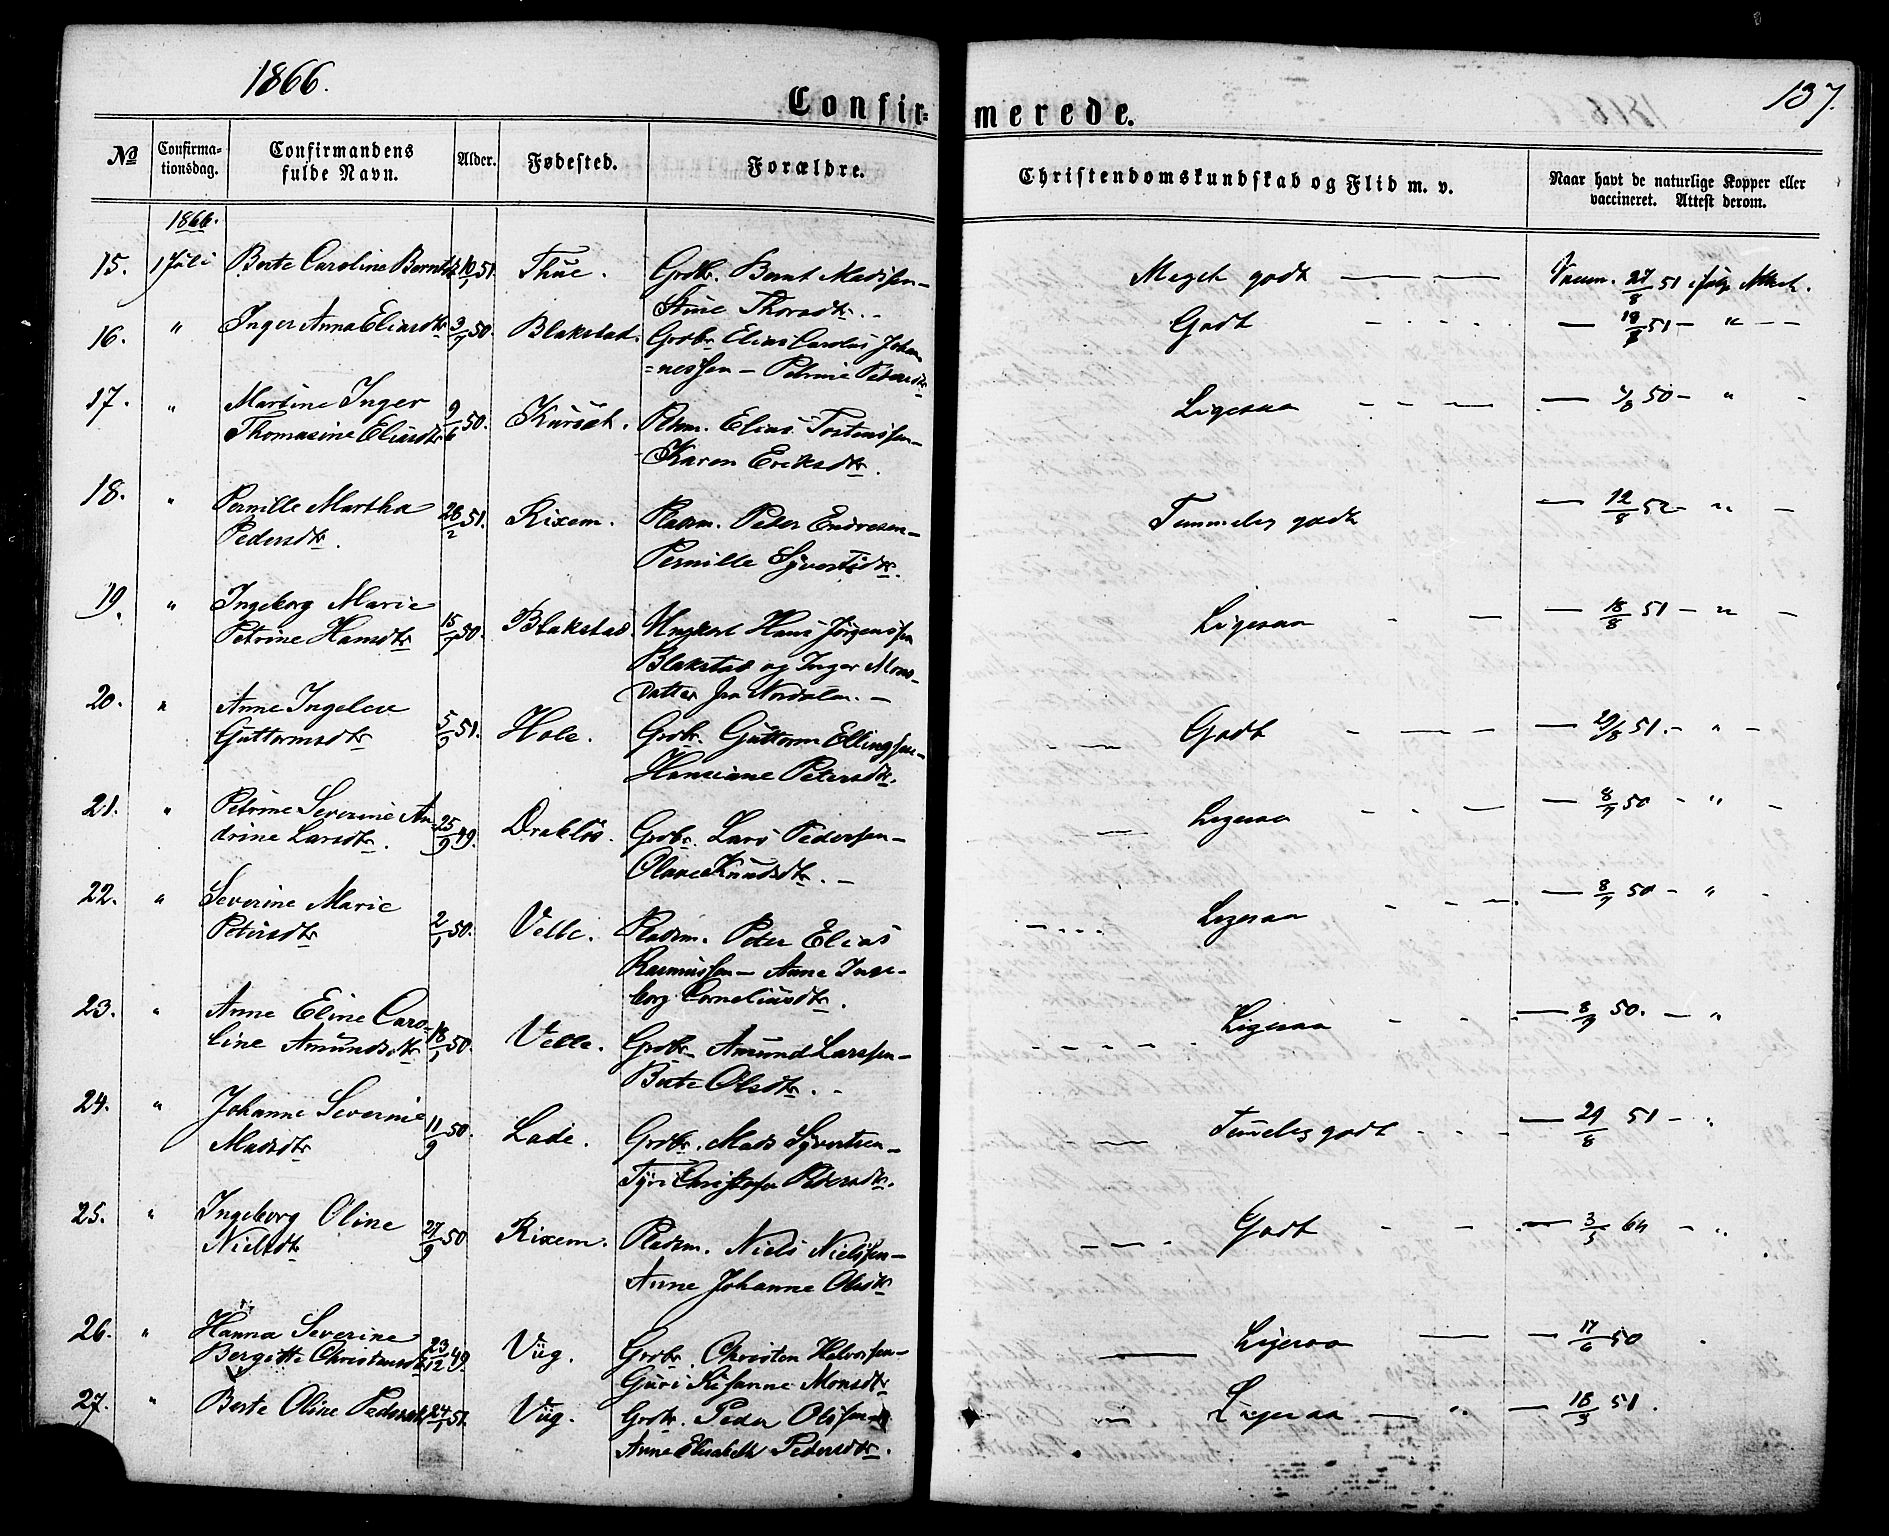 1866.
137.
Confir- merede.
No
Confirma-
tionsdag.
Confirmandens
fulde Navn.
Alder.
Fødested.
Forældre.
Christendomskundskab og Flid m. v.
Naar havt de naturlige Kopper eller
vaccineret. Attest derom.
1866.
15. 1 Juli Berte Caroline Berntdtr 10/1 51. Thue. Grdbr. Bernt Madssen – Meget godt — — Vaccin. 27/8 51 ifølge Attest.
Stine Thorsdtr. –
16. " Inger Anna Eliasdtr 3/7 50. Blakstad. Grdbr. Elias Carolus Johan Godt — 51 – " – –
=nessen – Petrine Petersdtr
17. " Martine Inger 9/6 50. Kursæt. Pldsm. Elias Tostenssen – Ligesaa — 50 – " –
Thomasine Eliasdtr
Karen Eriksdtr.
18. " Pernille Martha 28/2 51. Rixem. Pladsm. Peder Endresen – Temmelig godt — 12/8 52 – " –
Pedersdtr.
Pernille Syvertsdtr.
19. " Ingeborg Marie 15/7 50. Blakstad. Ungkarl Hans Jørgenssen Ligesaa — 18/8 51 – " –
Petrine Hansdtr
Blakstad og Inger Mons-
datter fra Nordalen. –
20. " Anne Ingeleve 5/9 51. Hole. Grdbr. Guttorm Ellingsen – Godt — 29/8 51. – " –
Guttormsdtr
Hansiane Petersdtr.
21. " Petrine Severine An- 25/9 49. Drabløs. Grdbr. Lars Pedersen – Ligesaa — 8/7 50 – " –
drine Larsdtr.
Olave Knudsdtr. –
22. " Severine Marie 2/1 50. Velle. Pladsm. Peter Elias Ligesaa — 8/7 50 – " –
Petersdtr
Rasmussen – Anne Inge-
borg Corneliusdtr.
23. " Anne Eline Caro- 18/1 50. Velle. Grdbr. Amund Larssen – Ligesaa — 8/7 50. – "
line Amundsdtr
Berte Olsdtr. –
24. " Johanne Severine 11/9 50. Lade. Grdbr. Mads Syvertsen – Temelig godt — 29/8 51 – "
Madsdtr
Tyri Christofa Pedersdtr.
25. " Ingeborg Oline 27/9 50 Rixem. Pladsm. Niels Nielssen – Godt — 3/5 64 – "
Nielsdtr
Anne Johanne Olsdtr
26. " Hanna Severine 23/12 49. Viig. Grdbr. Christen Halvorsen – Ligesaa — 17/6 50
Bergitte Christensdtr
Guri Susanne Monsdtr
27. " Berte Oline Pedersdtr 24/1 51. Viig. Grdbr. Peder Olssen – Ligesaa — " — 18/9 51.
Anne Elisabeth Pedersdtr.